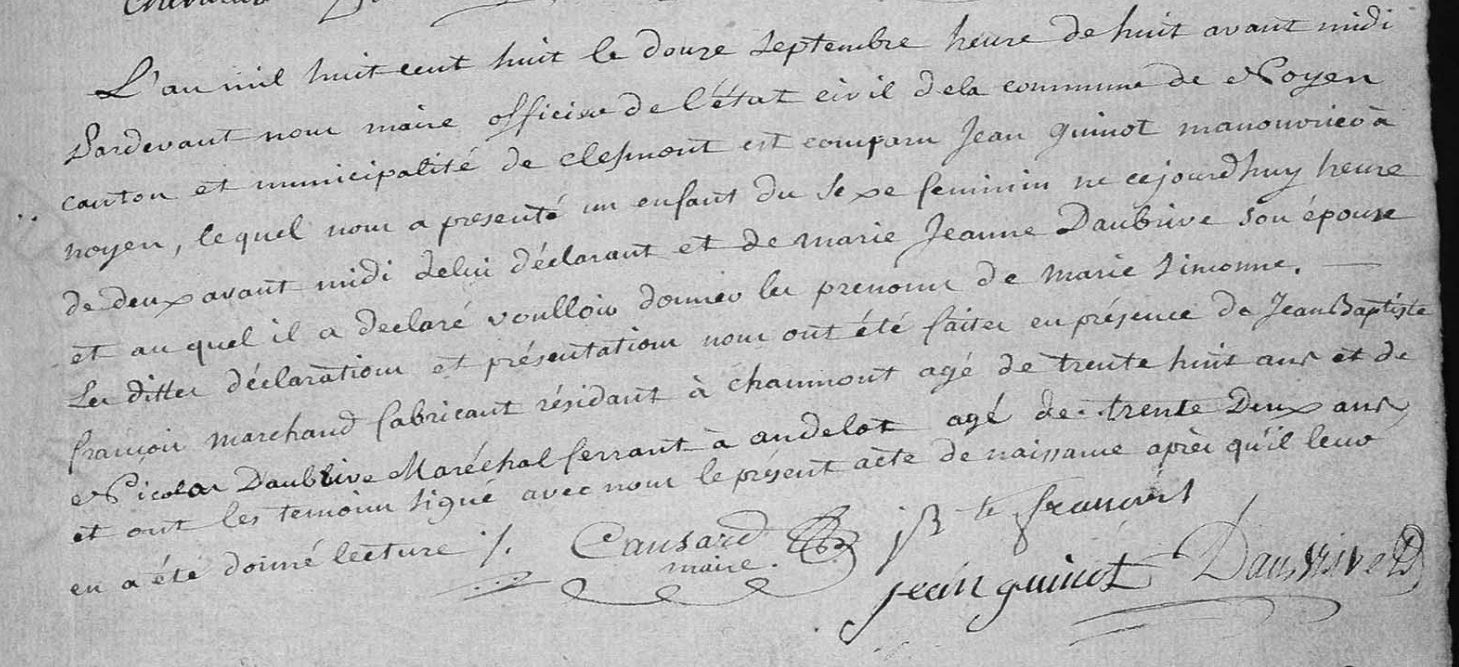 L'an mil huit cent huit le douze septembre heure de huit avant midi
Pardevant nous maire officier de l'état civil dela commune de Noyen
canton et municipalité de clefmont est comparu Jean guinot manouvrier à
noyen, lequel nous a presenté un enfant du sexe feminin né cejourd'huy heure
de deux avant midi delui déclarant et de marie Jeanne Daubrive son épouse
et au quel il a declaré voulloir donner les prenoms de marie simonne.
Les dittes déclarations et présentations nous ont été faites en présence de Jean Baptiste
françois marchand fabricant résidant à chaumont agé de trente huit ans et de
Nicolas Daubrive Maréchal ferrant à andelot agé de trente Deux ans
et ont les temoins signé avec nous le présent acte de naissance après qu'il leur
en a été donné lecture ./.
Causard
maire.
jB te francois
jean guinot
Daubrive